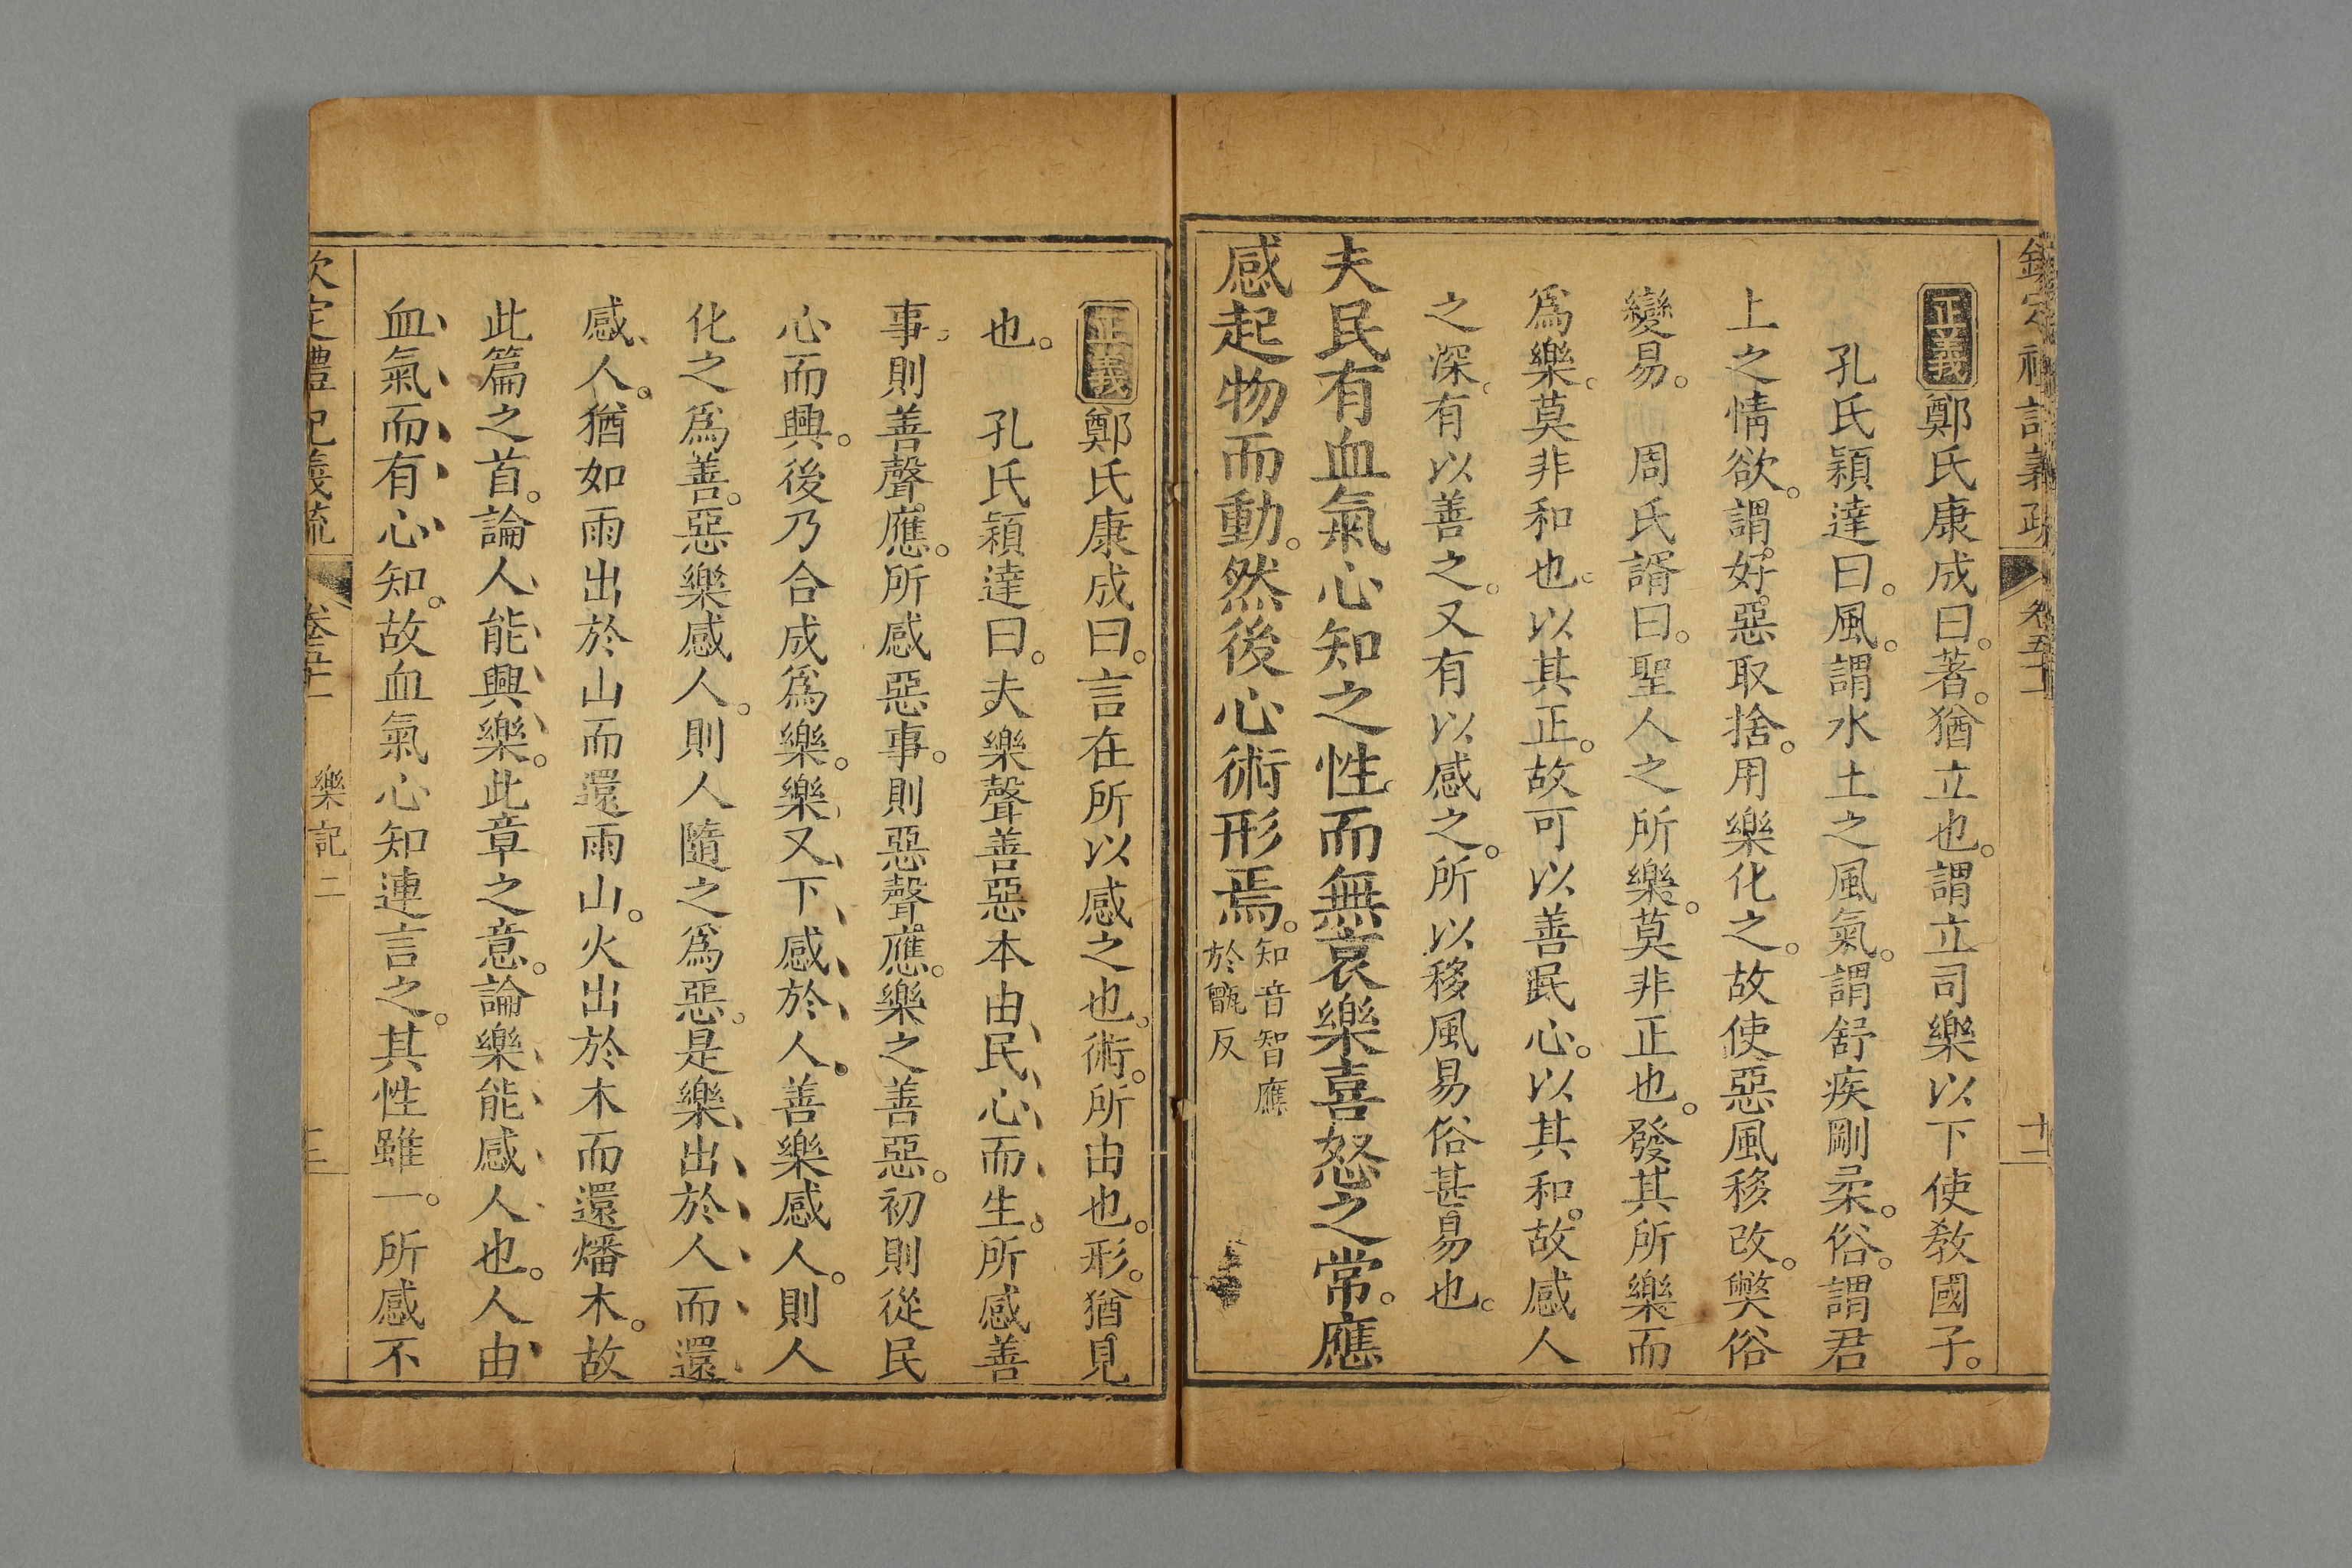 欽定禮記義疏 卷五十一 十二
正義鄭氏康成曰。著。猶立也。謂立司樂以下使敎國子。
孔氏穎達曰。風。謂水土之風氣。謂舒疾剛柔。俗。謂君
上之情欲。謂好。惡取捨。用樂化之。故使惡風移改。獘俗
變易。 周氏諝曰。聖人之所樂。莫非正也。發其所樂而
爲樂。莫非和也。以其正。故可以善民心。以其和。故感人
之深。有以善之。又有以感之。所以移風易俗甚易也。
夫民有血氣心知之性。而無哀樂喜怒之常。應
感起物而動。然後心術形焉。知音智應
於甑反
正義鄭氏康成曰。言在所以感之也。術。所由也。形。猶見
也。 孔氏穎達曰。夫樂聲善惡本由民心而生。所感善
事。則善聲應。所感惡事。則惡聲應。樂之善惡。初則從民
心而興。後乃合成爲樂。樂又下感於人。善樂感人。則人
化之爲善。惡樂感人。則人隨之爲惡。是樂出於人而還
感人。猶如雨出於山而還雨山。火出於木而還燔木。故
此篇之首。論人能興樂。此章之意。論樂能感人也。人由
血氣而有心知。故血氣心知連言之。其性雖一。所感不
欽定禮記義疏 卷五十一 樂記二